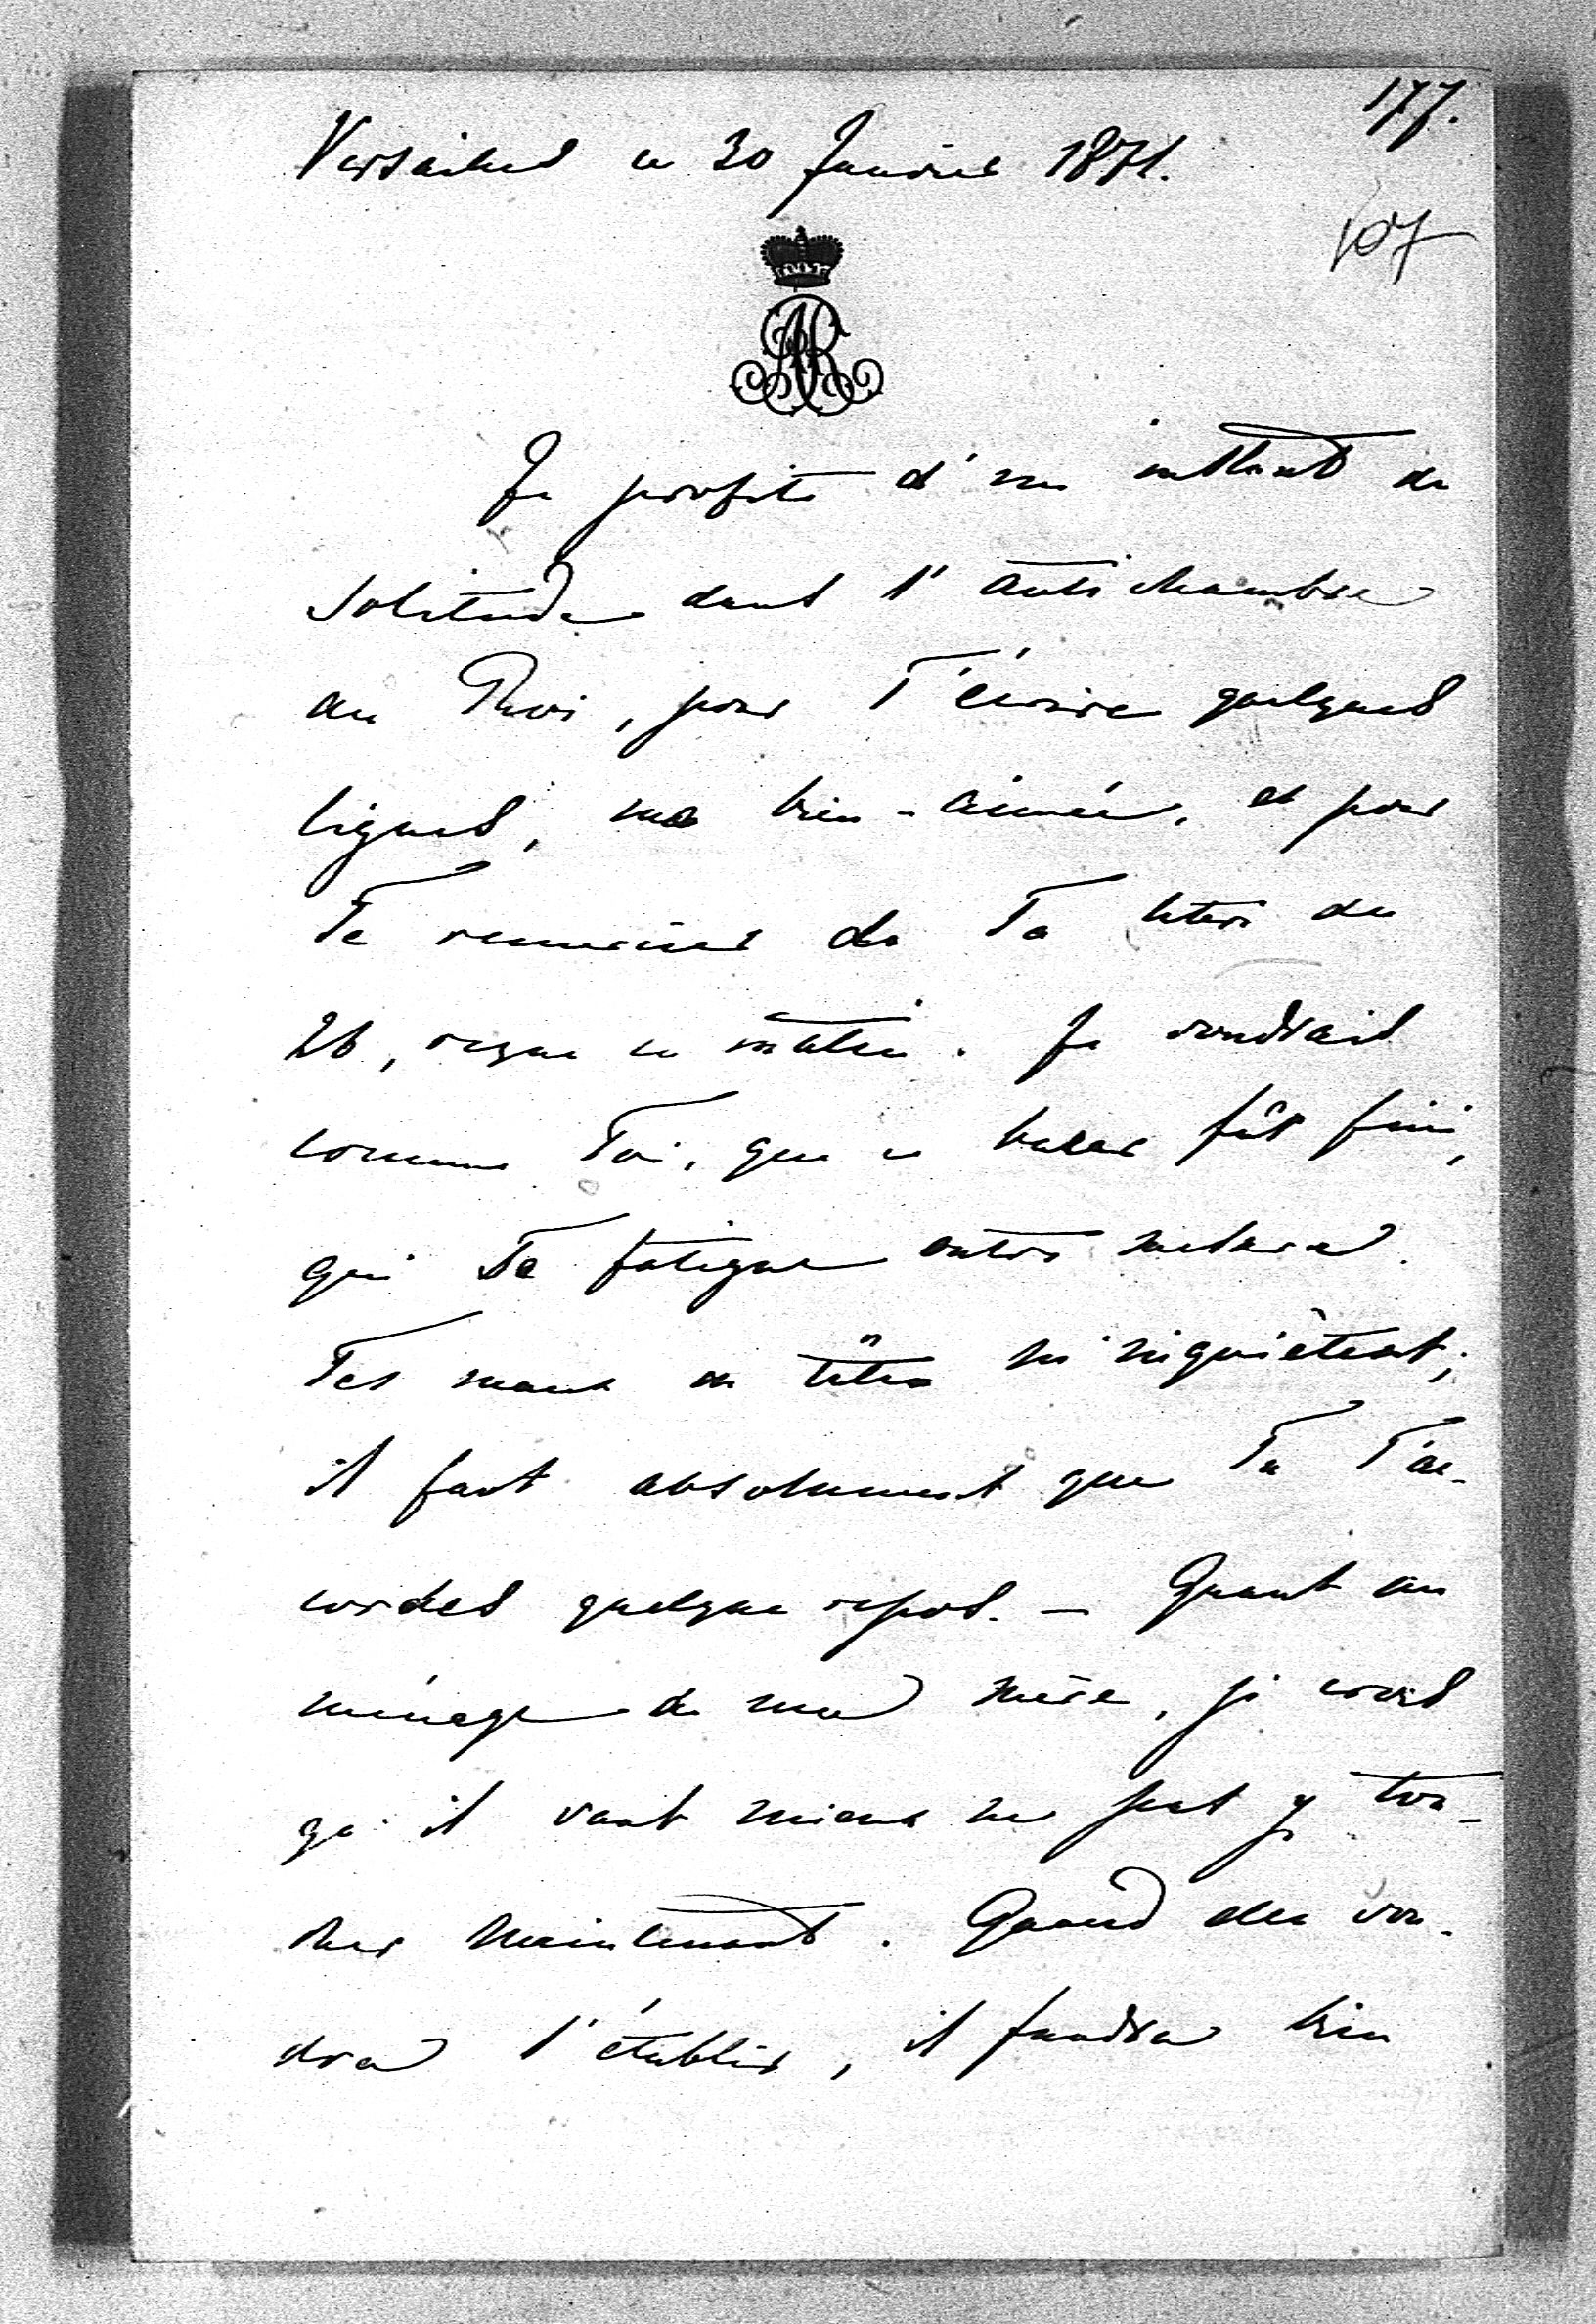 177.
Versailles ce 30 Janvier 1871.
107
AR
Je profite d'un instant de
solitude dans l'antichambre
du Roi, pour T'écrire quelques
lignes, ma bien-aimée, et pour
Te remercier de Ta lettre du
26, reçue ce matin. Je voudrais
comme Toi, que ce bazar fût fini,
qui Te fatigue outre mesure.
Tes maux de tête m'inquiètent;
il faut absolument que Tu T'ac-
cordes quelque repos. — Quant au
ménage de ma mère, je crois
qu'il vaut mieux ne pas y tou-
cher maintenant. Quand elle vou-
dra l'établir, il faudra bien